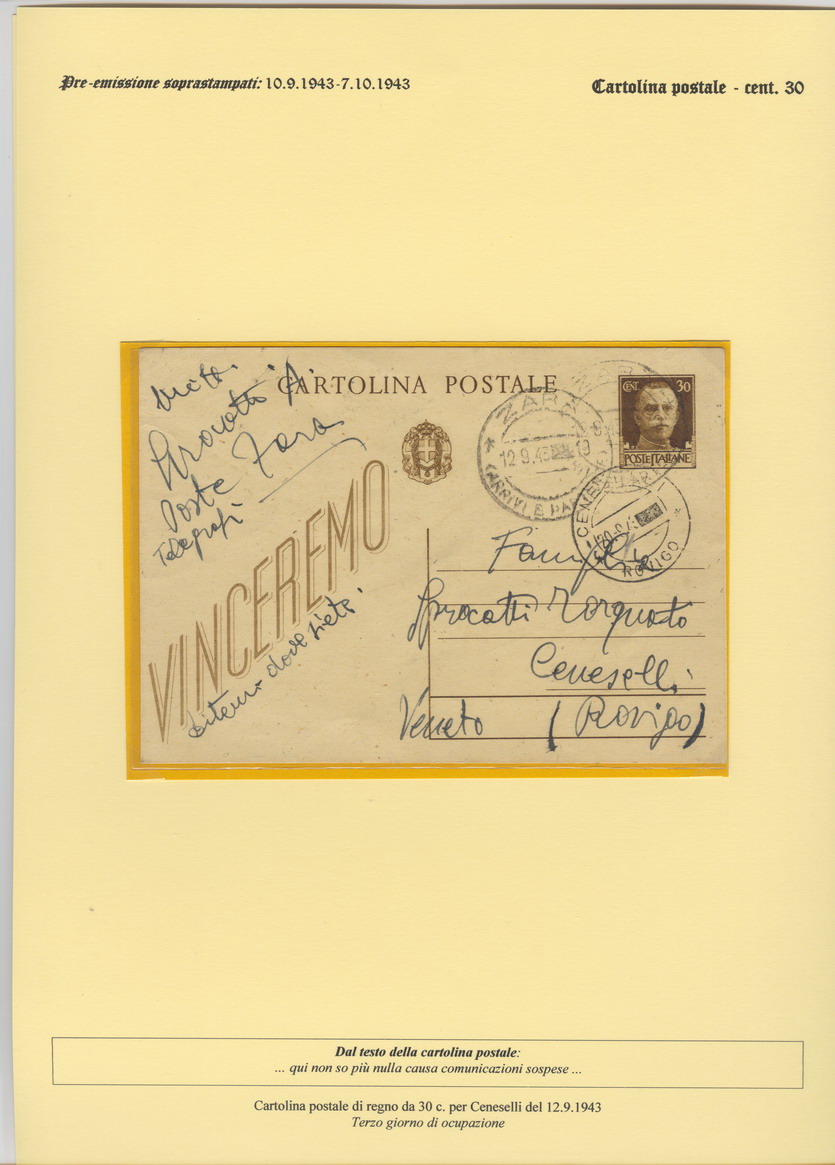 Pre-emissione soprastampati: 10.9.1943-7.10.1943
Cartolina postale - cent. 30
CARTOLINA POSTALE
Sprocatti A.
Poste Zara
Telegrafi
VINCEREMO
dove siete!
CENT. 30
POSTE ITALIANE
ZARA
12.9.43 19
(ARRIVI E PA
CENESELLI
ROVIGO
Famiglia
Sprocatti Torquato
Ceneselli
Veneto (Rovigo)
Dal testo della cartolina postale:
... qui non so più nulla causa comunicazioni sospese ...
Cartolina postale di regno da 30 c. per Ceneselli del 12.9.1943
Terzo giorno di ocupazione